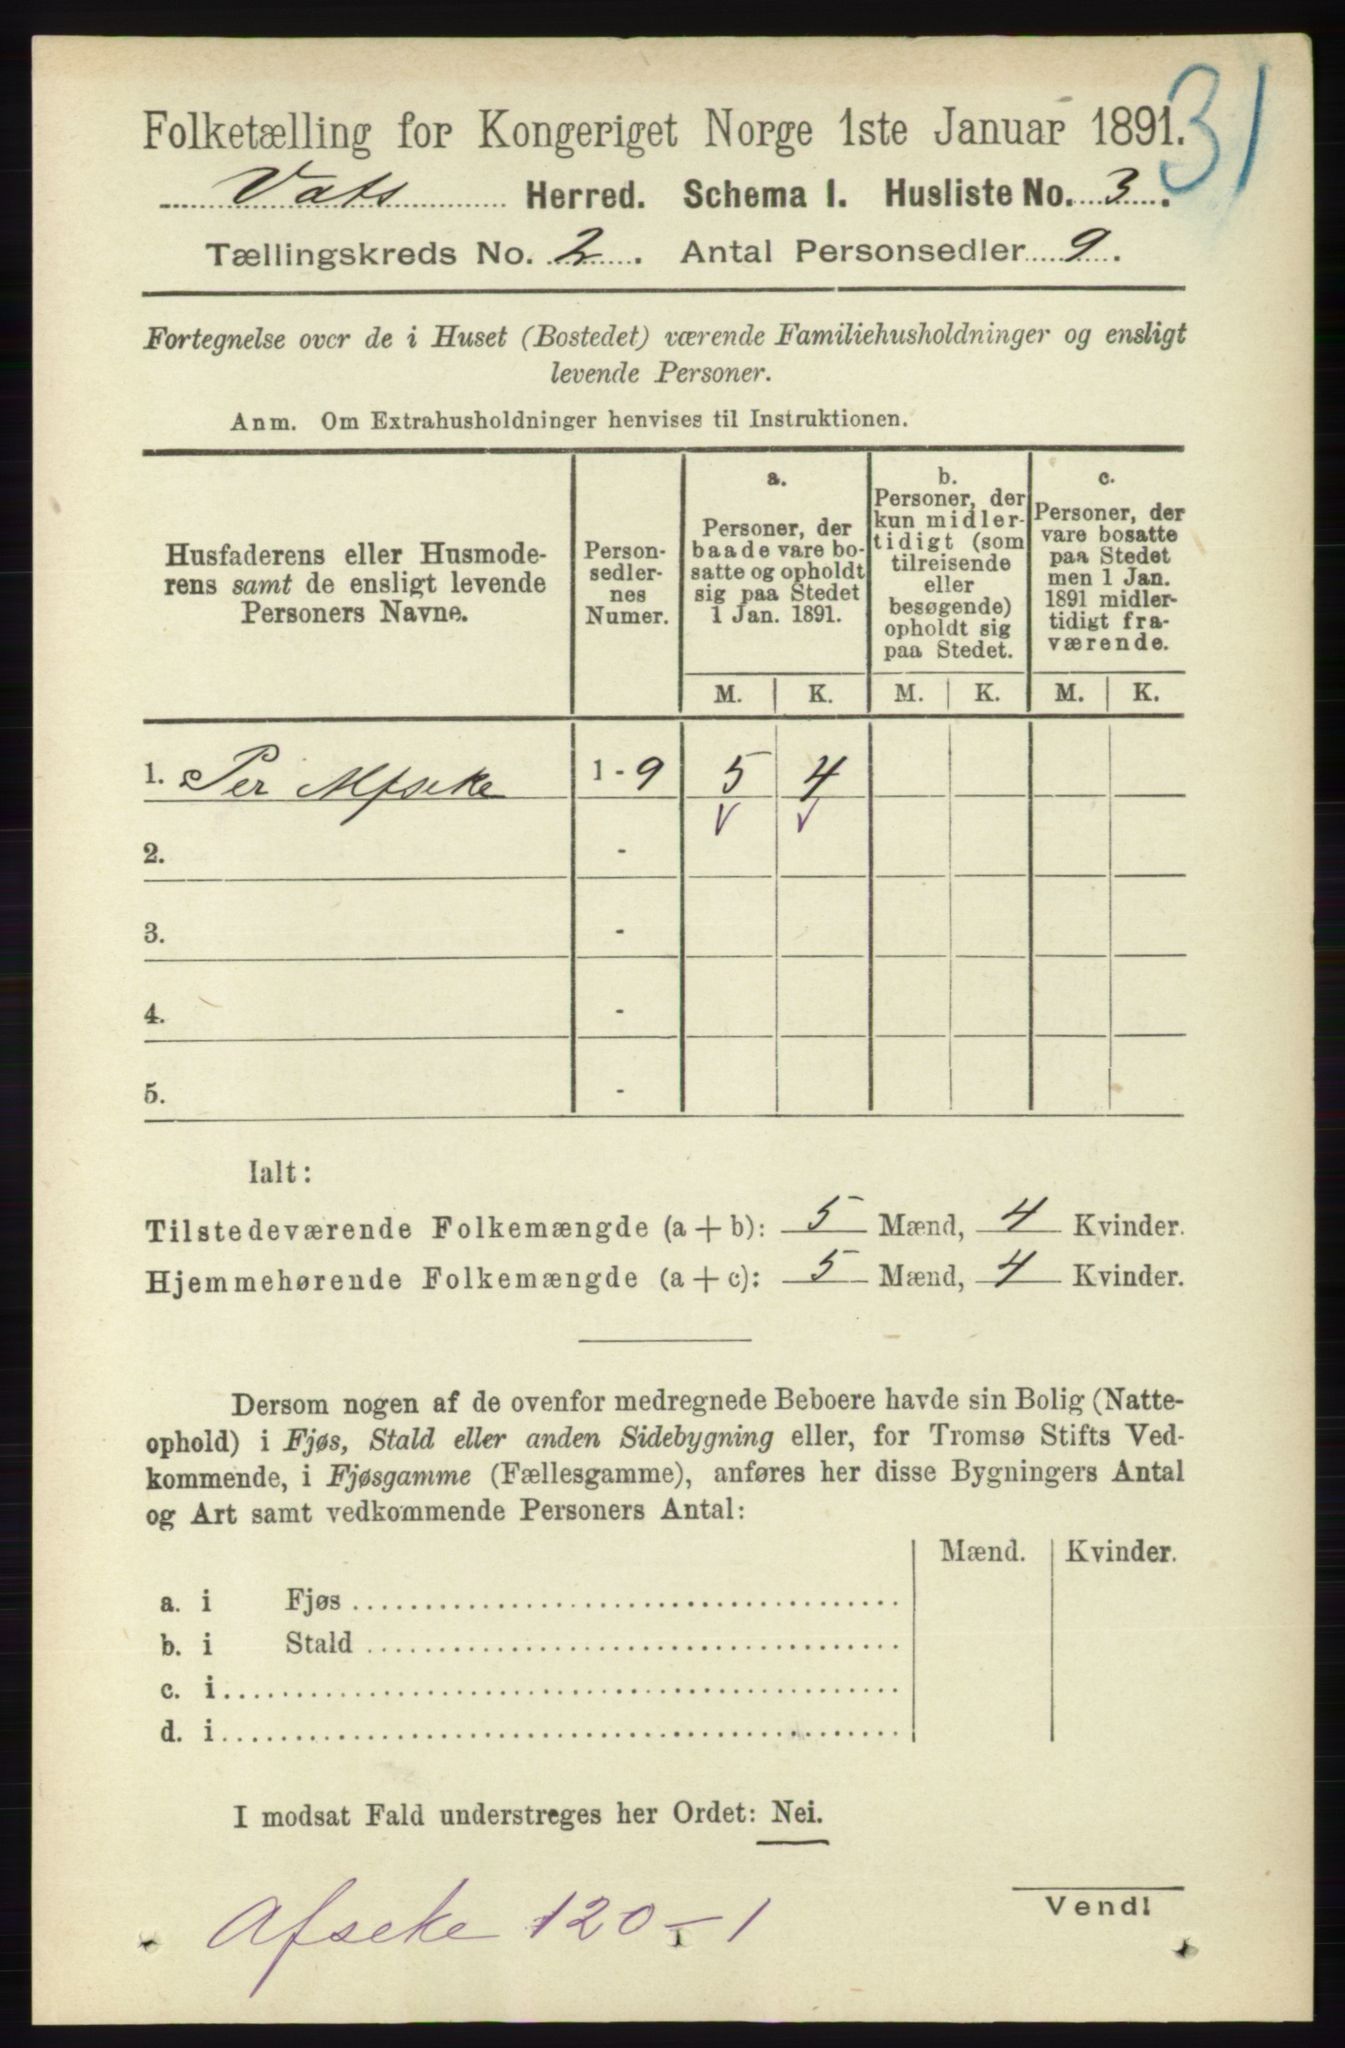 31
Folketælling for Kongeriget Norge 1ste Januar 1891.
Vats Herred. Schema I. Husliste No. 3.
Tællingskreds No. 2. Antal Personsedler 9.
Fortegnelse over de i Huset (Bostedet) værende Familiehusholdninger og ensligt
levende Personer.
Anm. Om Extrahusholdninger henvises til Instruktionen.
Husfaderens eller Husmode-
rens samt de ensligt levende
Personers Navne.
Person-
sedler-
nes
Numer.
a.
Personer, der
baade vare bo-
satte og opholdt
sig paa Stedet
1 Jan. 1891.
b.
Personer, der
kun midler-
tidigt (som
tilreisende
eller
besøgende)
opholdt sig
paa Stedet.
c.
Personer, der
vare bosatte
paa Stedet
men 1 Jan.
1891 midler-
tidigt fra-
værende.
M. K. M. K. M. K.
1. Per Afseke 1 - 9 5 4
2. -
3. -
4. -
5. -
Ialt:
Tilstedeværende Folkemængde (a + b): 5 Mænd, 4 Kvinder.
Hjemmehørende Folkemængde (a + c): 5 Mænd, 4 Kvinder.
Dersom nogen af de ovenfor medregnede Beboere havde sin Bolig (Natte-
ophold) i Fjøs, Stald eller anden Sidebygning eller, for Tromsø Stifts Ved-
kommende, i Fjøsgamme (Fællesgamme), anføres her disse Bygningers Antal
og Art samt vedkommende Personers Antal:
Mænd. Kvinder.
a. i Fjøs
b. i Stald
c. i
d. i
I modsat Fald understreges her Ordet: Nei.
Vend!
Afseke 120-1